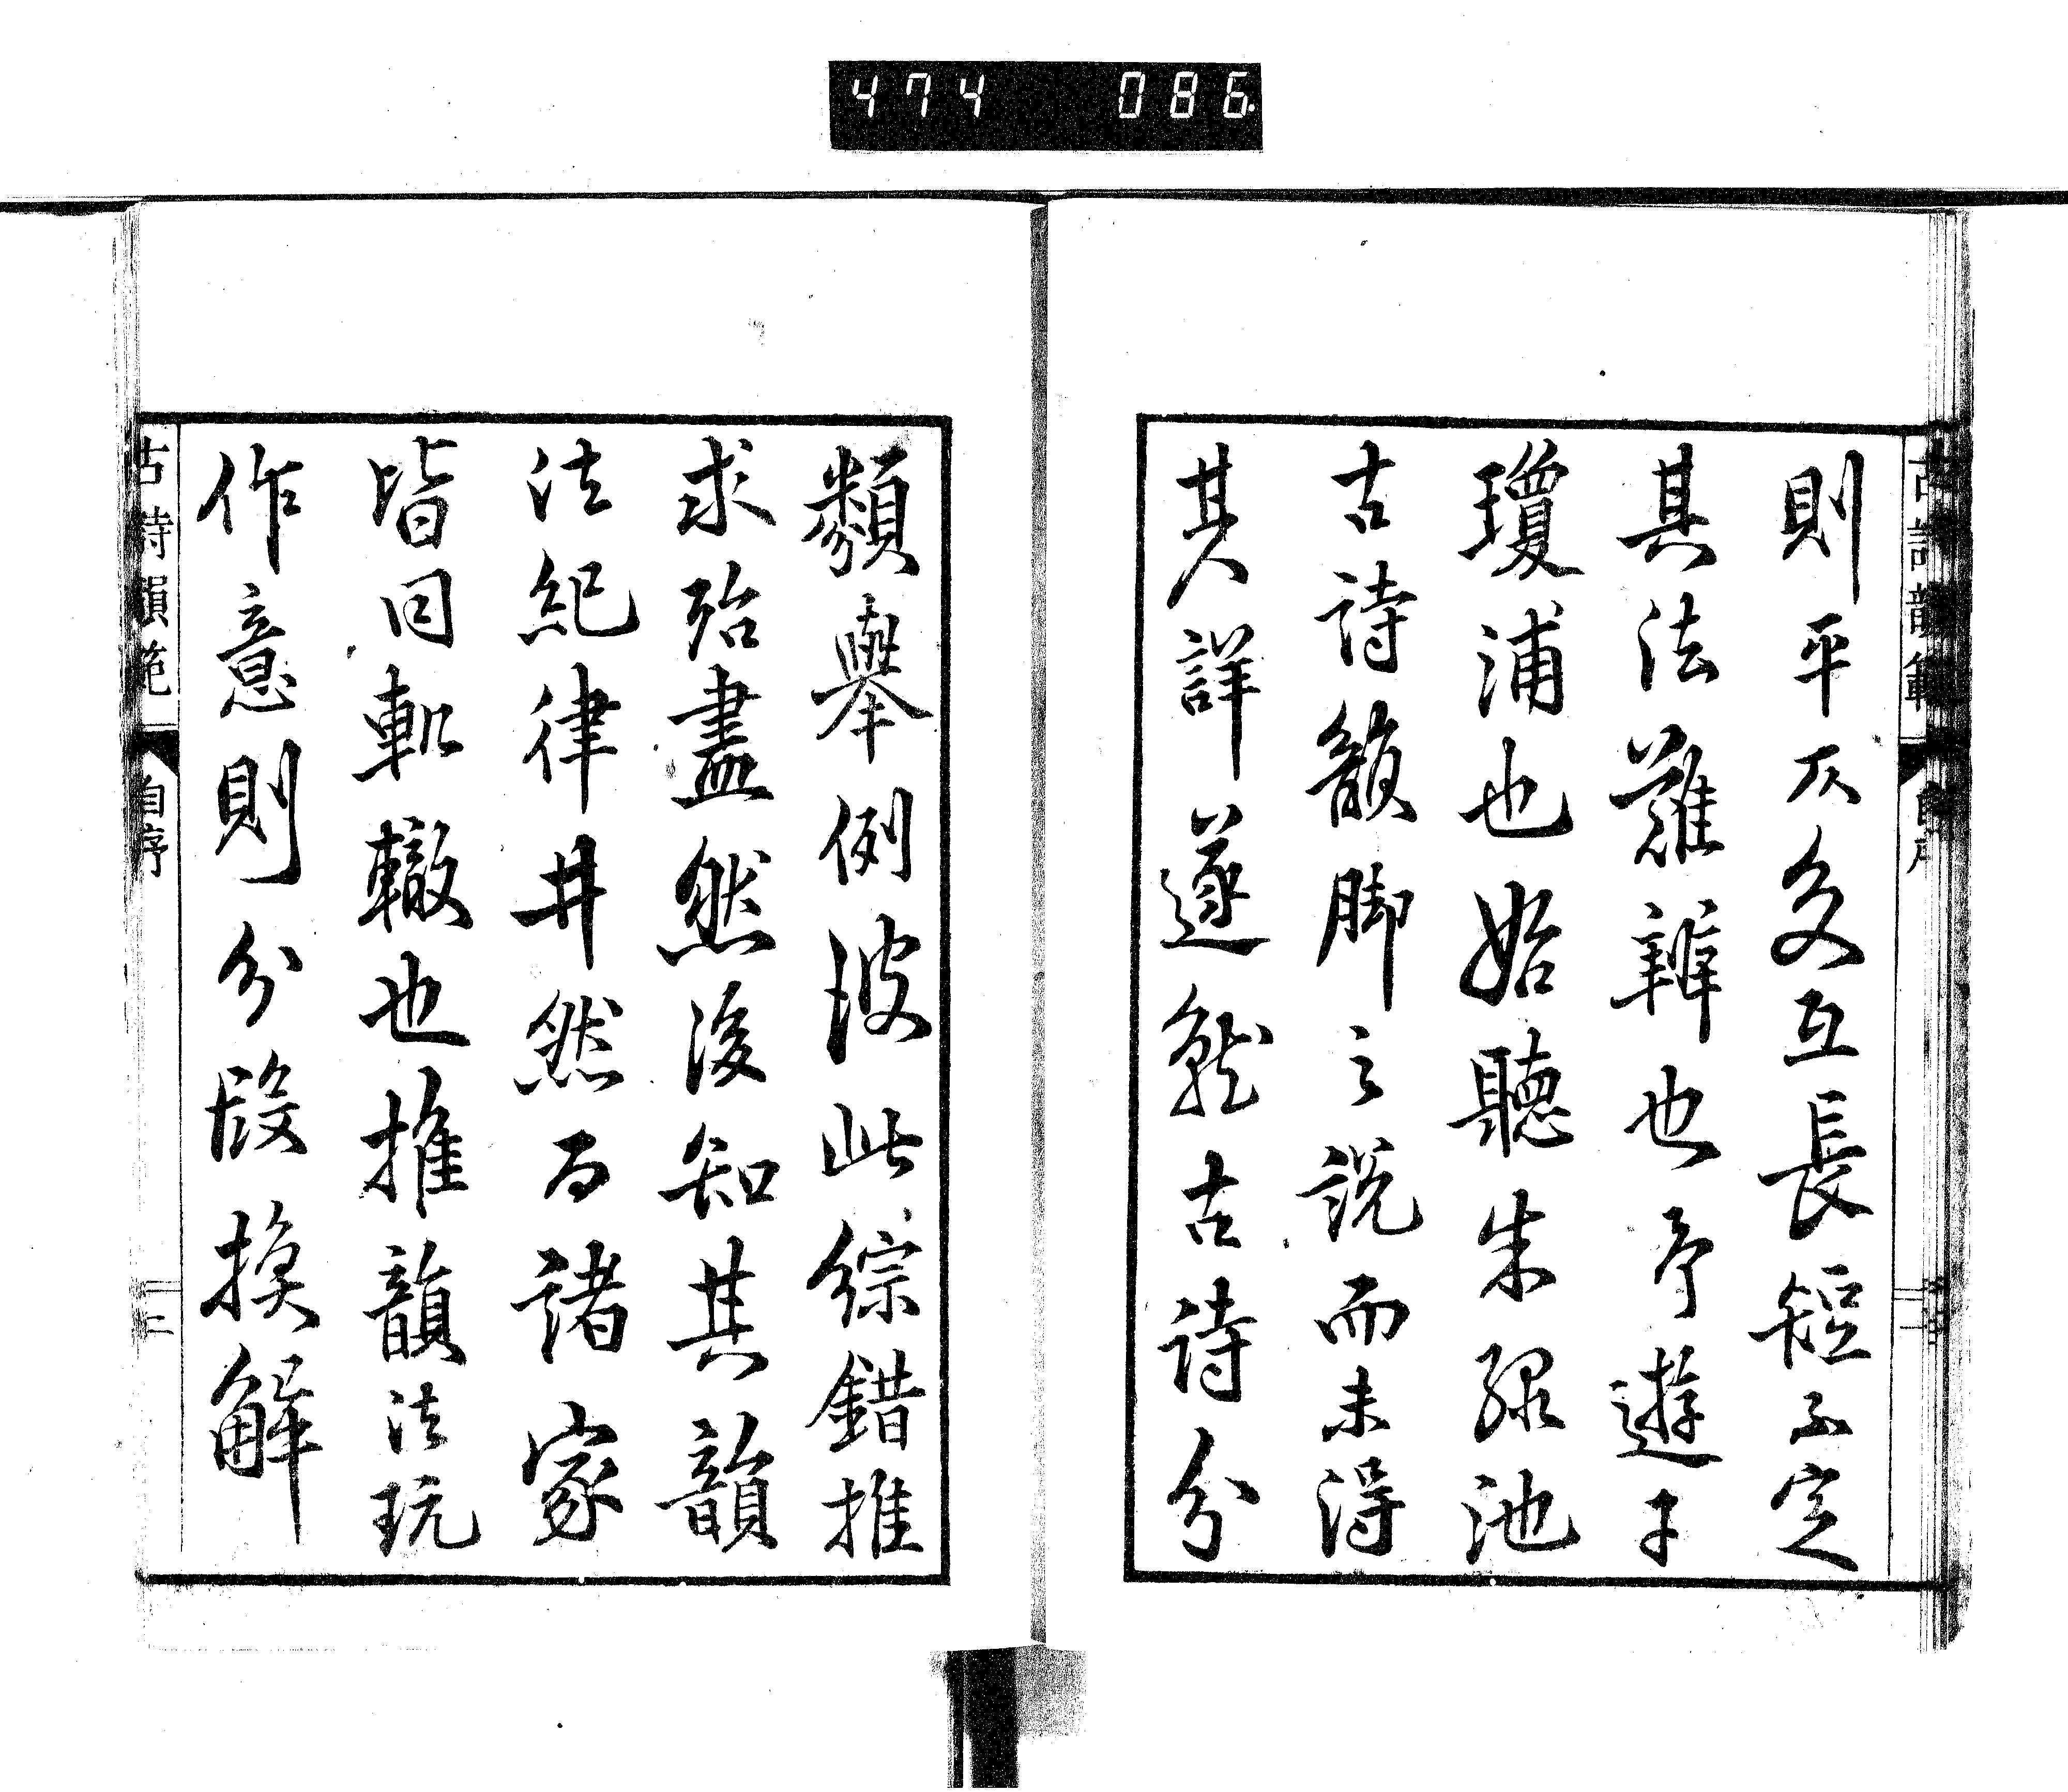 474 086
古詩韻範 自序
則平仄多互長短不定
其法難辨也予遊于
瓊浦也始聽朱綠池
古詩韻脚之說而未得
其詳遂就古詩分
類舉例彼此綜錯推
求殆盡然後知其韻
法紀律井然而諸家
皆同軌轍也推韻法玩
作意則分段換解
古詩韻範 自序 三